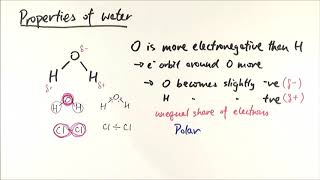 Properties of water
O δ-
H H
δ+ δ+
O
H H
H O H
Cl Cl
Cl ÷ Cl
O is more electronegative than H
→ e⁻ orbit around O more
→ O becomes slightly -ve (δ-)
H " " +ve (δ+)
unequal share of electrons
Polar